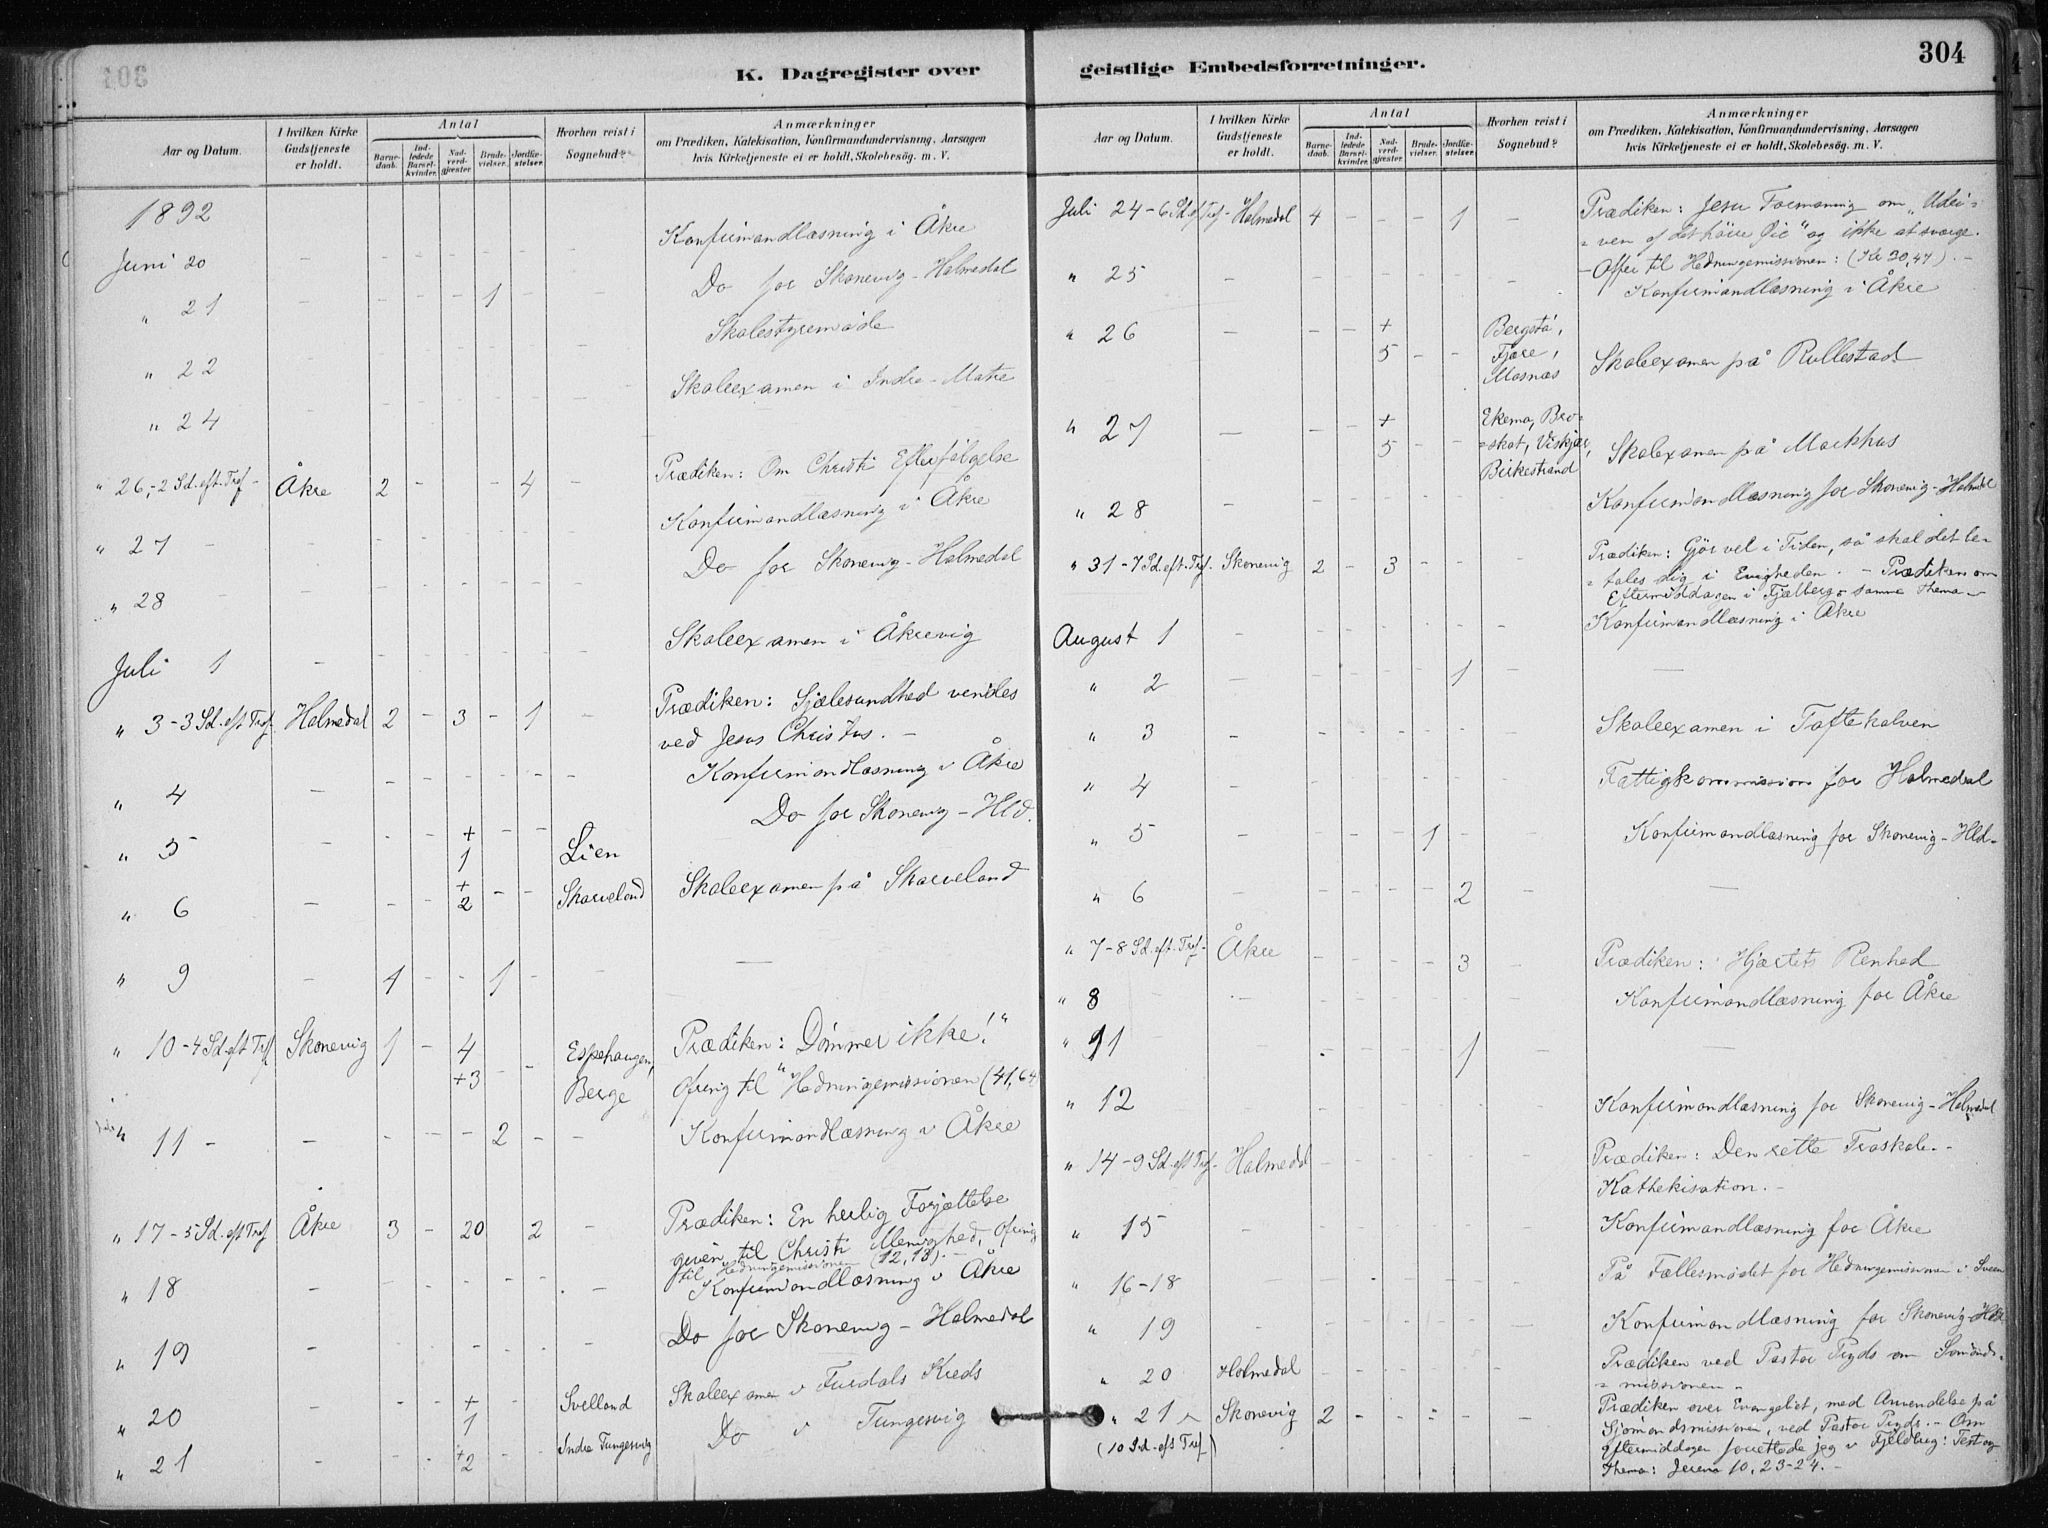 304
K. Dagregister over geistlige Embedsforretninger.
Aar og Datum.
I hvilken Kirke Gudstjeneste er holdt.
Antal
Barnedaab.
Indledede Barselkvinder.
Nadverdgjæster.
Brudevielser.
Jordfæstelser.
Hvorhen reist i Sognebud?
Anmærkninger
om Prædiken, Katekisation, Konfirmandundervisning, Aarsagen
hvis Kirketjeneste ei er holdt, Skolebesøg. m. V.
1892
Juni 20 - - - - - - - Konfirmandlæsning i Åkre
" 21 - - - - 1 - - Do for Skonevig - Holmedal
" 22 - - - - - - - Skolestyremøde
" 24 - - - - - - - Skoleexamen i Indre-Matre
" 26,-2 Sd. eft. Tref - Åkre 2 - - - 4 - Prædiken: Om Christi Efterfølgelse
" 27 - - - - - - - Konfirmandlæsning i Åkre
" 28 - - - - - - - Do for Skonevig - Holmedal
Juli 1 - - - - - - - Skoleexamen i Åkrevig
" 3-3 Sd. eft Tref. Holmedal 2 - 3 - 1 - Prædiken: Sjælesundhed vendes
ved Jesus Christus. -
" 4 - - - - - - - Konfirmandlæsning i Åkre
" 5 - - - + 1 - - Lien Do for Skonevig - Hld.
" 6 - - - + 2 - - Skarveland Skoleexamen på Skarveland
" 9 - 1 - - 1 - -
" 10-4 Sd. eft Tref Skonevig 1 - 4 +3 - - Espehaugen, Berge Prædiken: Dømmer ikke!"
Ofring til "Hedningemissionen (41,64)
" 11 - - - - - 2 - - Konfirmandlæsning i Åkre
" 17-5 Sd. eft Tref Åkre 3 - 20 - 2 - Prædiken: En herlig Forjættelse
given til Christi Menighed, Ofring
til Hedningemissionen (12,18). -
" 18 - - - - - - - Konfirmandlæsning i Åkre
" 19 - - - - - - - Do for Skonevig - Holmedal
" 20 - - - + 1 - - Svelland Skoleexamen i Furdals Kreds
" 21 - - - + 2 - - Indre Tungesvig Do i Tungesvig
Aar og Datum.
I hvilken Kirke Gudstjeneste er holdt.
Antal
Barnedaab.
Indledede Barselkvinder.
Nadverdgjæster.
Brudevielser.
Jordfæstelser.
Hvorhen reist i Sognebud?
Anmærkninger
om Prædiken, Katekisation, Konfirmandundervisning, Aarsagen
hvis Kirketjeneste ei er holdt, Skolebesøg. m. V.
Juli 24-6 Sd. eft Tref - Holmedal 4 - - - 1 - Prædiken: Jesu Formaning om "Udri-
=ven af det høire Øie" og ikke at sværge.
- Offer til Hedningemissionen: (Kr 30,47). -
" 25 - - - - - - - Konfirmandlæsning i Åkre
" 26 - - - + 5 - - Bergstø, Fjære, Mosnæs Skoleexamen på Rullestad
" 27 - - - + 5 - - Ekemo, Bro-
=skot, Viskjær, Birkestrand Skolexamen på Markhus
" 28 - - - - - - - Konfirmandlæsning for Skonevig - Holmdal
" 31-7 Sd. eft. Tref. Skonevig 2 - 3 - - - Prædiken: Gjør vel i Tiden, så skal det be-
=tales dig i Evigheden. - Prædiken om
Eftermiddagen i Fjælberg o samme Thema -
August 1 - - - - - - - Konfirmandlæsning i Åkre
" 2 - - - - - 1 - -
" 3 - - - - - - - Skoleexamen i Toftekalven
" 4 - - - - - - - Fattigkommission for Holmedal
" 5 - - - - 1 - - Konfirmandlæsning for Skonevig - Hld-
" 6 - - - - - 2 - -
" 7-8 Sd. eft. Tref- Åkre - - - - 3 - Prædiken: Hjærtets Renhed
" 8 - - - - - - - Konfirmandlæsning for Åkre
" 11 - - - - - 1 -
" 12 - - - - - - - Konfirmandlæsning for Skonevig - Holmedal
" 14-9 Sd. eft Tref- Holmedal - - - - - - Prædiken: Den rette Troskab. -
Kathekisation. -
" 15 - - - - - - - Konfirmandlæsning for Åkre
" 16-18 - - - - - - - På Fællesmødet for Hedningemissionen i Sveen
" 19 - - - - - - - Konfirmandlæsning for Skonevig - Hld
" 20 Holmedal - - - - - - Prædiken ved Pastor Tryds om Sømands-
=missionen -
" 21 - Skonevig 2 - - - - - Prædiken over Evangeliet, med Anvendelse på
(10 Sd. eft Tref) Sjømandsmissionen, ved Pastor Tryds. - Om
Eftermiddagen forrettede jeg i Fjeldberg: Text og
Thema: Jerem 10, 23-24. -